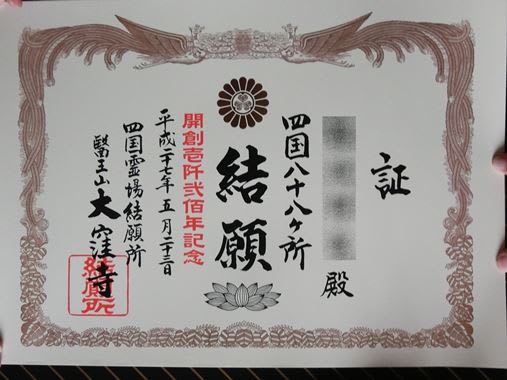 証
殿
四国八十八ケ所
結願
開創壱阡弐佰年記念
平成二十七年五月二十三日
四国霊場結願所
醫王山大窪寺
結願所